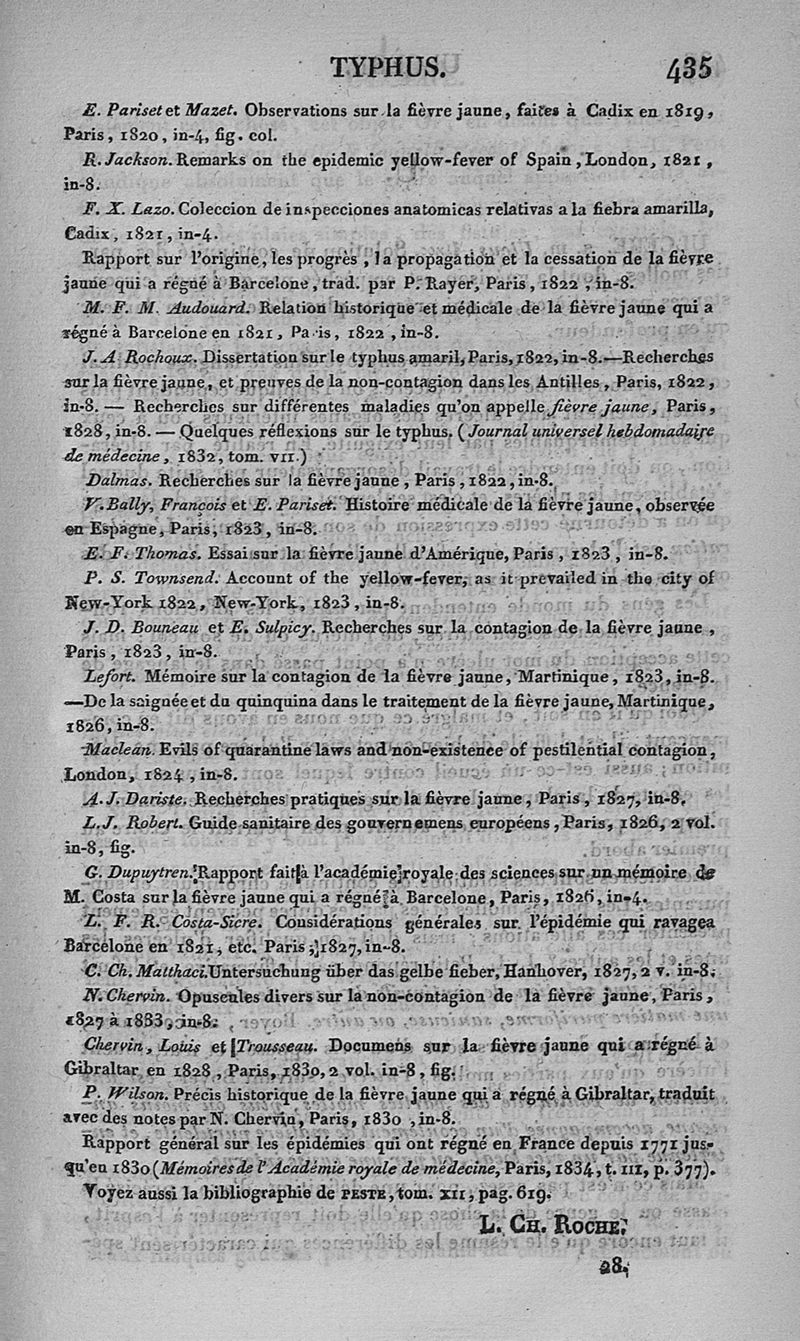 TYPHUS. 435
E. Pariset et Mazet. Observations sur la fièvre jaune, faites à Cadix en 1819,
Paris, 1820, in-4, fig. col.
R. Jackson. Remarks on the epidemic yellow-fever of Spain, London, 1821,
in-8.
F. X. Lazo. Coleccion de inspecciones anatomicas relativas a la fiebra amarilla,
Cadix, 1821, in-4.
Rapport sur l'origine, les progrès, la propagation et la cessation de la fièvre
jaune qui a régné à Barcelone, trad. par P. Rayer, Paris, 1822, in-8.
M. F. M. Audouard. Relation historique et médicale de la fièvre jaune qui a
régné à Barcelone en 1821, Pa is, 1822, in-8.
J. A Rochoux. Dissertation sur le typhus amaril, Paris, 1822, in-8.—Recherches
sur la fièvre jaune, et preuves de la non-contagion dans les Antilles, Paris, 1822,
in-8. — Recherches sur différentes maladies qu'on appelle fièvre jaune, Paris,
1828, in-8. — Quelques réflexions sur le typhus. (Journal universel hebdomadaire
de médecine, 1832, tom. VII.)
Dalmas. Recherches sur la fièvre jaune, Paris, 1822, in-8.
V. Bally, François et E. Pariset. Histoire médicale de la fièvre jaune, observée
en Espagne, Paris, 1823, in-8.
E. F. Thomas. Essai sur la fièvre jaune d'Amérique, Paris, 1823, in-8.
P. S. Townsend. Account of the yellow-fever, as it prevailed in the city of
New-York 1822, New-York, 1823, in-8.
J. D. Bouneau et E. Sulpicy. Recherches sur la contagion de la fièvre jaune,
Paris, 1823, in-8.
Lefort. Mémoire sur la contagion de la fièvre jaune, Martinique, 1823, in-8.
—De la saignée et du quinquina dans le traitement de la fièvre jaune, Martinique,
1826, in-8.
Maclean. Evils of quarantine laws and non-existence of pestilential contagion,
London, 1824, in-8.
A. J. Dariste. Recherches pratiques sur la fièvre jaune, Paris, 1827, in-8.
L. J. Robert. Guide sanitaire des gouvernemens européens, Paris, 1826, 2 vol.
in-8, fig.
G. Dupuytren. Rapport fait à l'académie royale des sciences sur un mémoire de
M. Costa sur la fièvre jaune qui a régné à Barcelone, Paris, 1826, in-4.
L. F. R. Costa-Sicre. Considérations générales sur l'épidémie qui ravagea
Barcelone en 1821, etc. Paris, 1827, in-8.
C. Ch. Matthaci. Untersuchung über das gelbe fieber, Hanhover, 1827, 2 v. in-8.
N. Chervin. Opuscules divers sur la non-contagion de la fièvre jaune, Paris,
1827 à 1833, in-8.
Chervin, Louis et Trousseau. Documens sur la fièvre jaune qui a régné à
Gibraltar en 1828, Paris, 1830, 2 vol. in-8, fig.
P. Wilson. Précis historique de la fièvre jaune qui a régné à Gibraltar, traduit
avec des notes par N. Chervin, Paris, 1830, in-8.
Rapport général sur les épidémies qui ont régné en France depuis 1771 jus-
qu'en 1830 (Mémoires de l'Académie royale de médecine, Paris, 1834, t. III, p. 377).
Voyez aussi la bibliographie de PESTE, tom. XII, pag. 619.
L. CH. ROCHE.
28.